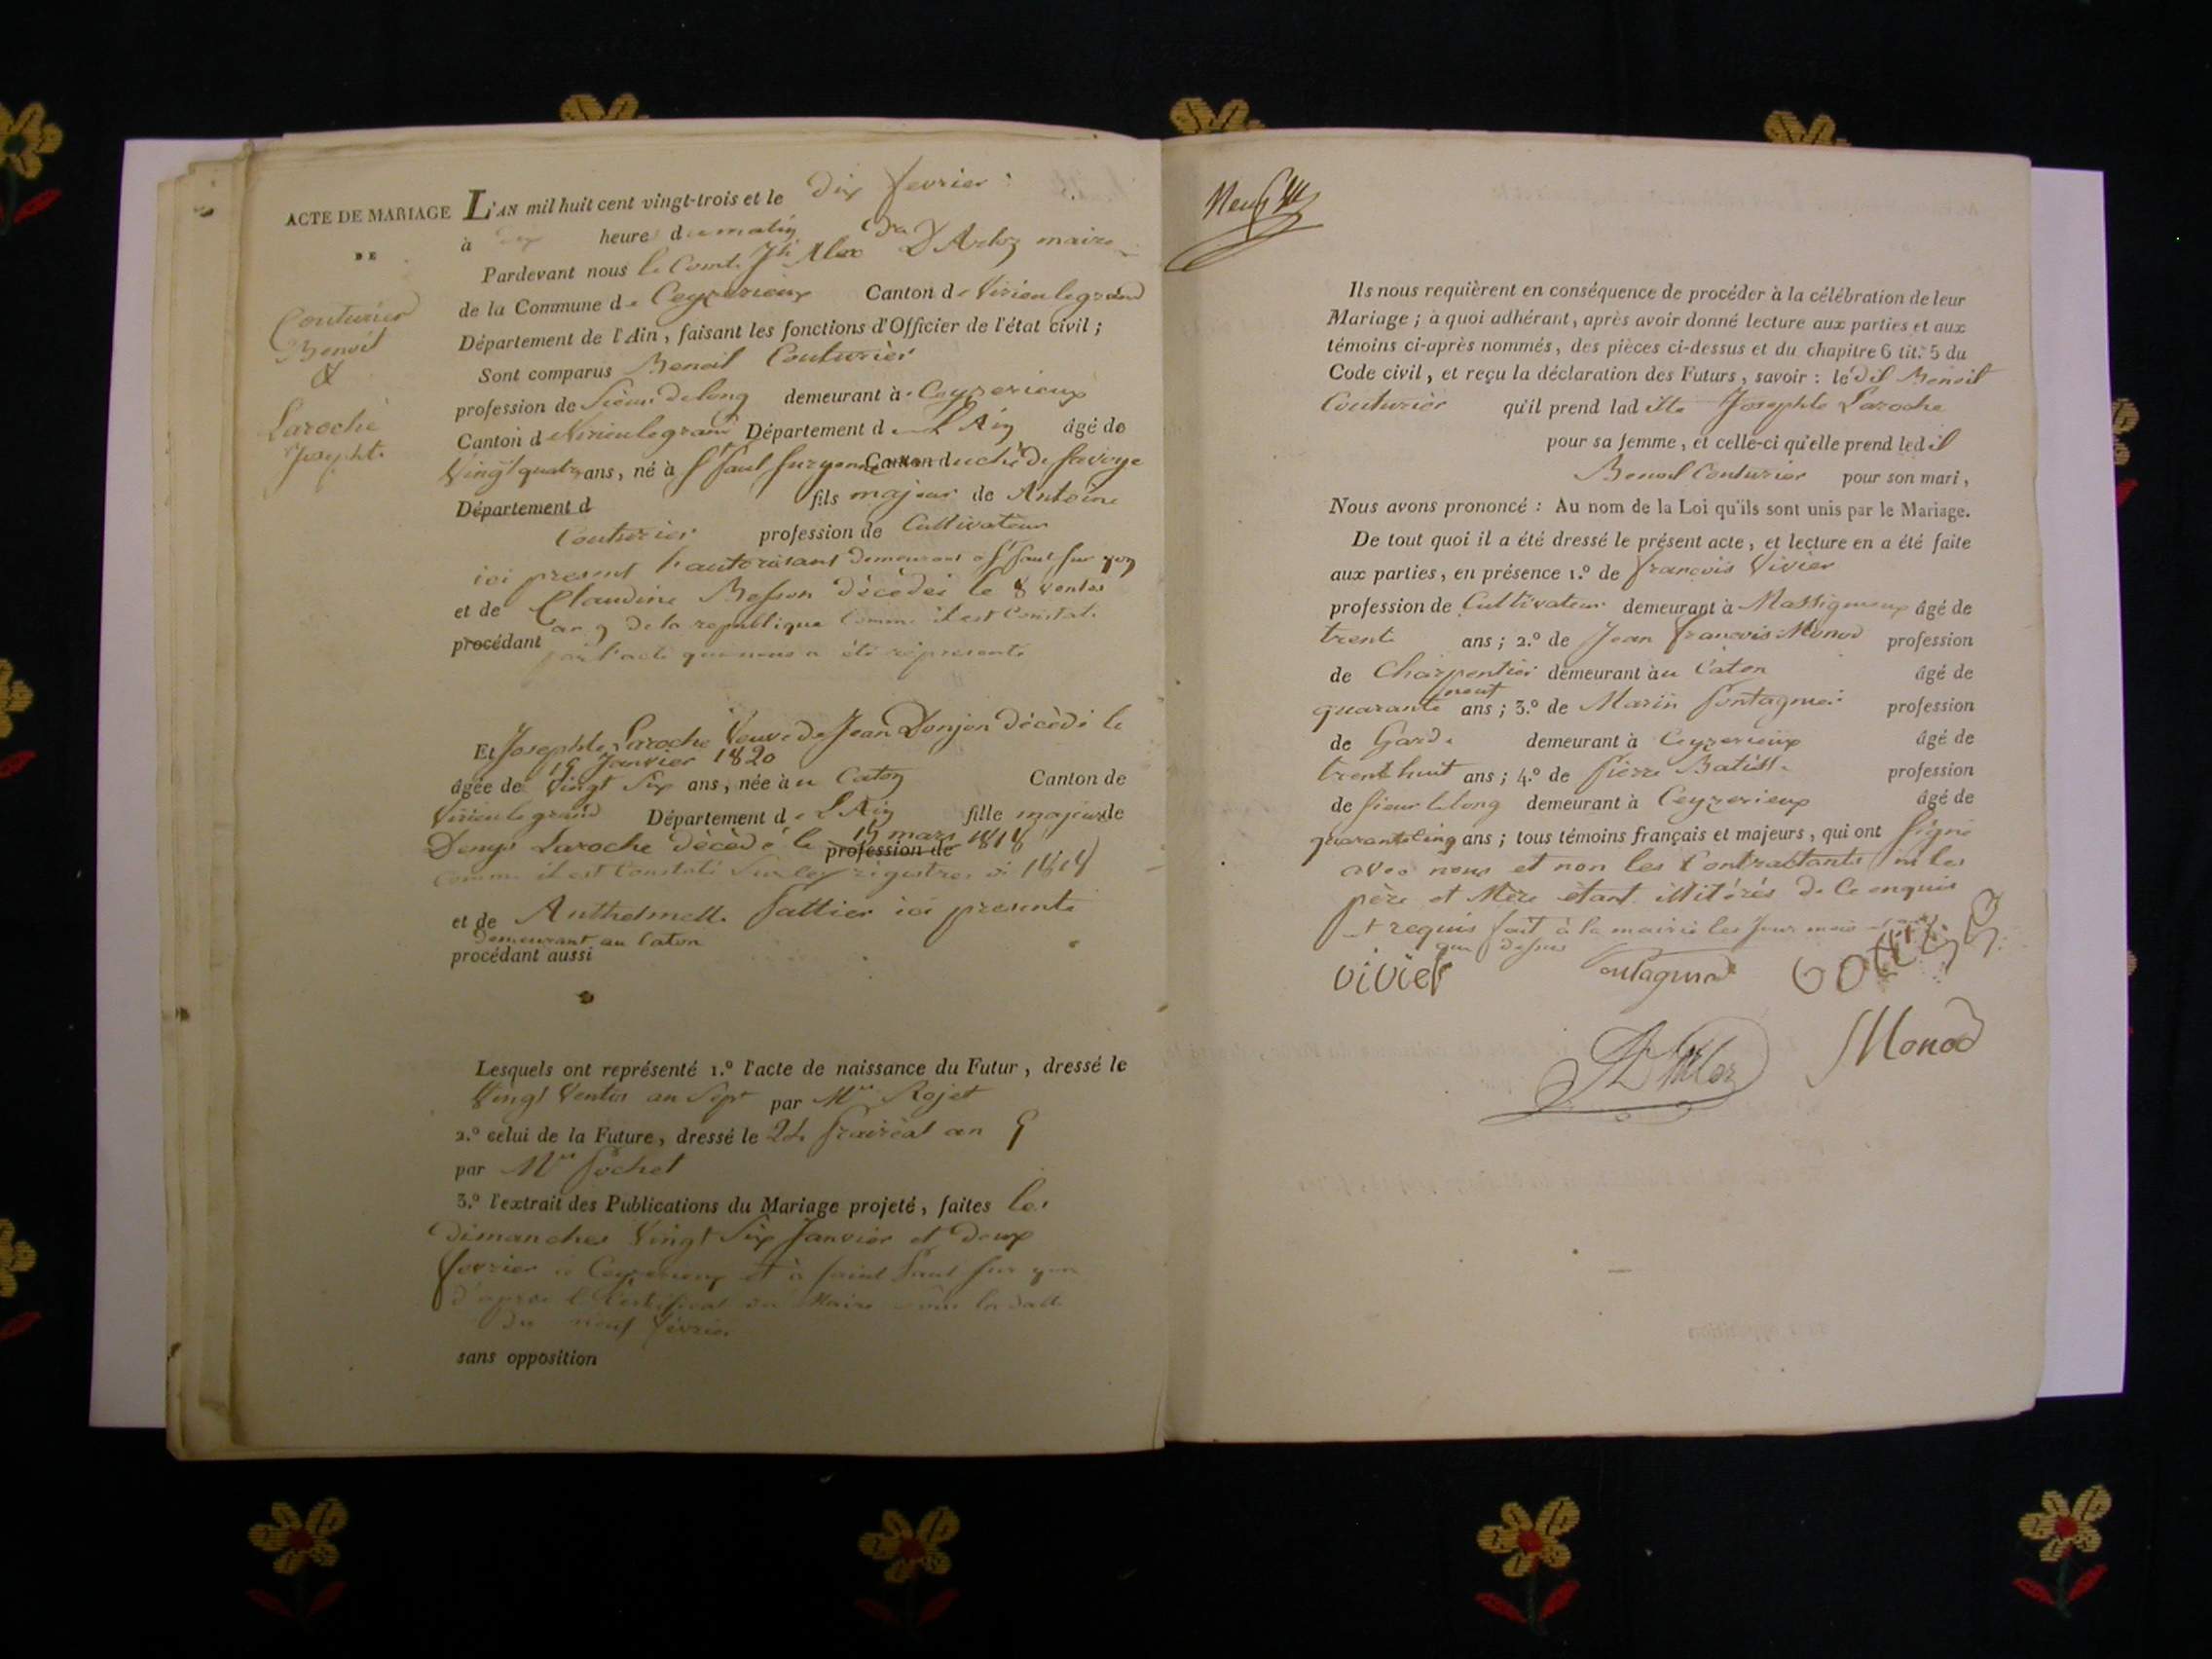 ACTE DE MARIAGE
DE
Couturier
Benoit
&
Laroche
Josephte
L'AN mil huit cent vingt-trois et le dix fevrier
à dix heures du matin
Pardevant nous le Comte Jh Alex D'Arloz maire
de la Commune de Ceyzerieux Canton de Virieulegrand
Département de l'Ain, faisant les fonctions d'Officier de l'état civil ;
Sont comparus Benoit Couturier
profession de Sieur de long demeurant à Ceyzerieux
Canton de Virieulegrand Département de L'Ain âgé de
Vingt quatre ans, né à St Paul sur yenne Canton d duché de Savoye
Département d fils majeur de Antoine
Couturier profession de Cultivateur
ici present l'autorisant demeurant a St Paul sur yon
et de Claudine Besson décédée le 8 ventos
an 9 de la republique Comme il est Constaté
procédant par l'acte que nous a été représenté
Et Josephte Laroche Veuve de Jean Donjon décédé le
19 Janvier 1820
âgée de Vingt Six ans, née au Caton Canton de
Virieulegrand Département de L'Ain fille majeure de
Denys Laroche décédé le 19 mars 1814 profession de
Comme il est Constaté Sur les registres de 1814
et de Anthelmette Pattier ici presente
demeurant au Caton
procédant aussi
Lesquels ont représenté 1.º l'acte de naissance du Futur, dressé le
Vingt Ventos an Sept par Mr Rojet
2.º celui de la Future, dressé le 24 prairéal an 5
par Mr Pochet
3.º l'extrait des Publications du Mariage projeté, faites les
dimanches Vingt Six Janvier et deux
fevrier à Ceyzerieux et à saint Paul sur yon
d'après le Certificat du Maire sous la datte
du neuf février
sans opposition
Neuf
Ils nous requièrent en conséquence de procéder à la célébration de leur
Mariage ; à quoi adhérant, après avoir donné lecture aux parties et aux
témoins ci-après nommés, des pièces ci-dessus et du chapitre 6 tit. 5 du
Code civil, et reçu la déclaration des Futurs, savoir : ledit Benoit
Couturier qu'il prend laditte Josephte Laroche
pour sa femme, et celle-ci qu'elle prend ledit
Benoit Couturier pour son mari,
Nous avons prononcé : Au nom de la Loi qu'ils sont unis par le Mariage.
De tout quoi il a été dressé le présent acte, et lecture en a été faite
aux parties, en présence 1.º de françois Vivier
profession de Cultivateur demeurant à Massigneux âgé de
trente ans ; 2.º de Jean françois Monod profession
de Charpentier demeurant au Caton âgé de
quarante neuf ans ; 3.º de Marin fontagnier profession
de Garde demeurant à Ceyzerieux âgé de
trente huit ans ; 4.º de Pierre Batiste profession
de sieur de long demeurant à Ceyzerieux âgé de
quarante cinq ans ; tous témoins français et majeurs, qui ont Signé
avec nous et non les Contractants ni les
père et Mère étant illitérés de Ce enquis
et requis fait à la mairie les Jour mois et an
que dessus
vivier
Monod